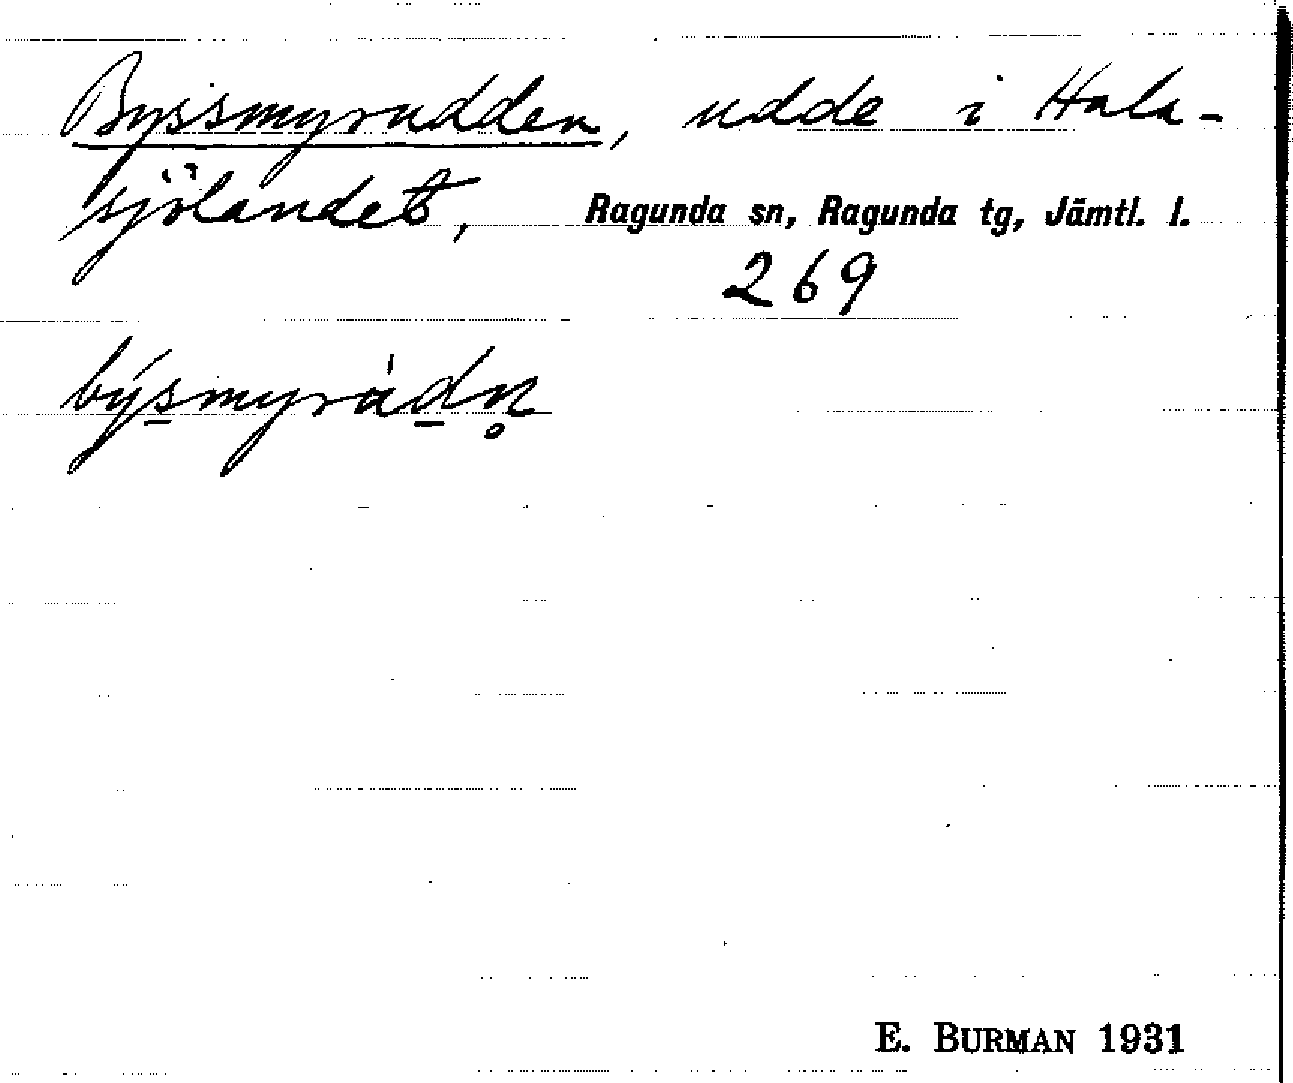 Byssmyrudden, udde i Hala-
sjölandet, Ragunda sn, Ragunda tg, Jämtl. l.
269
býs̲myrùd̲n̥
E. BURMAN 1931